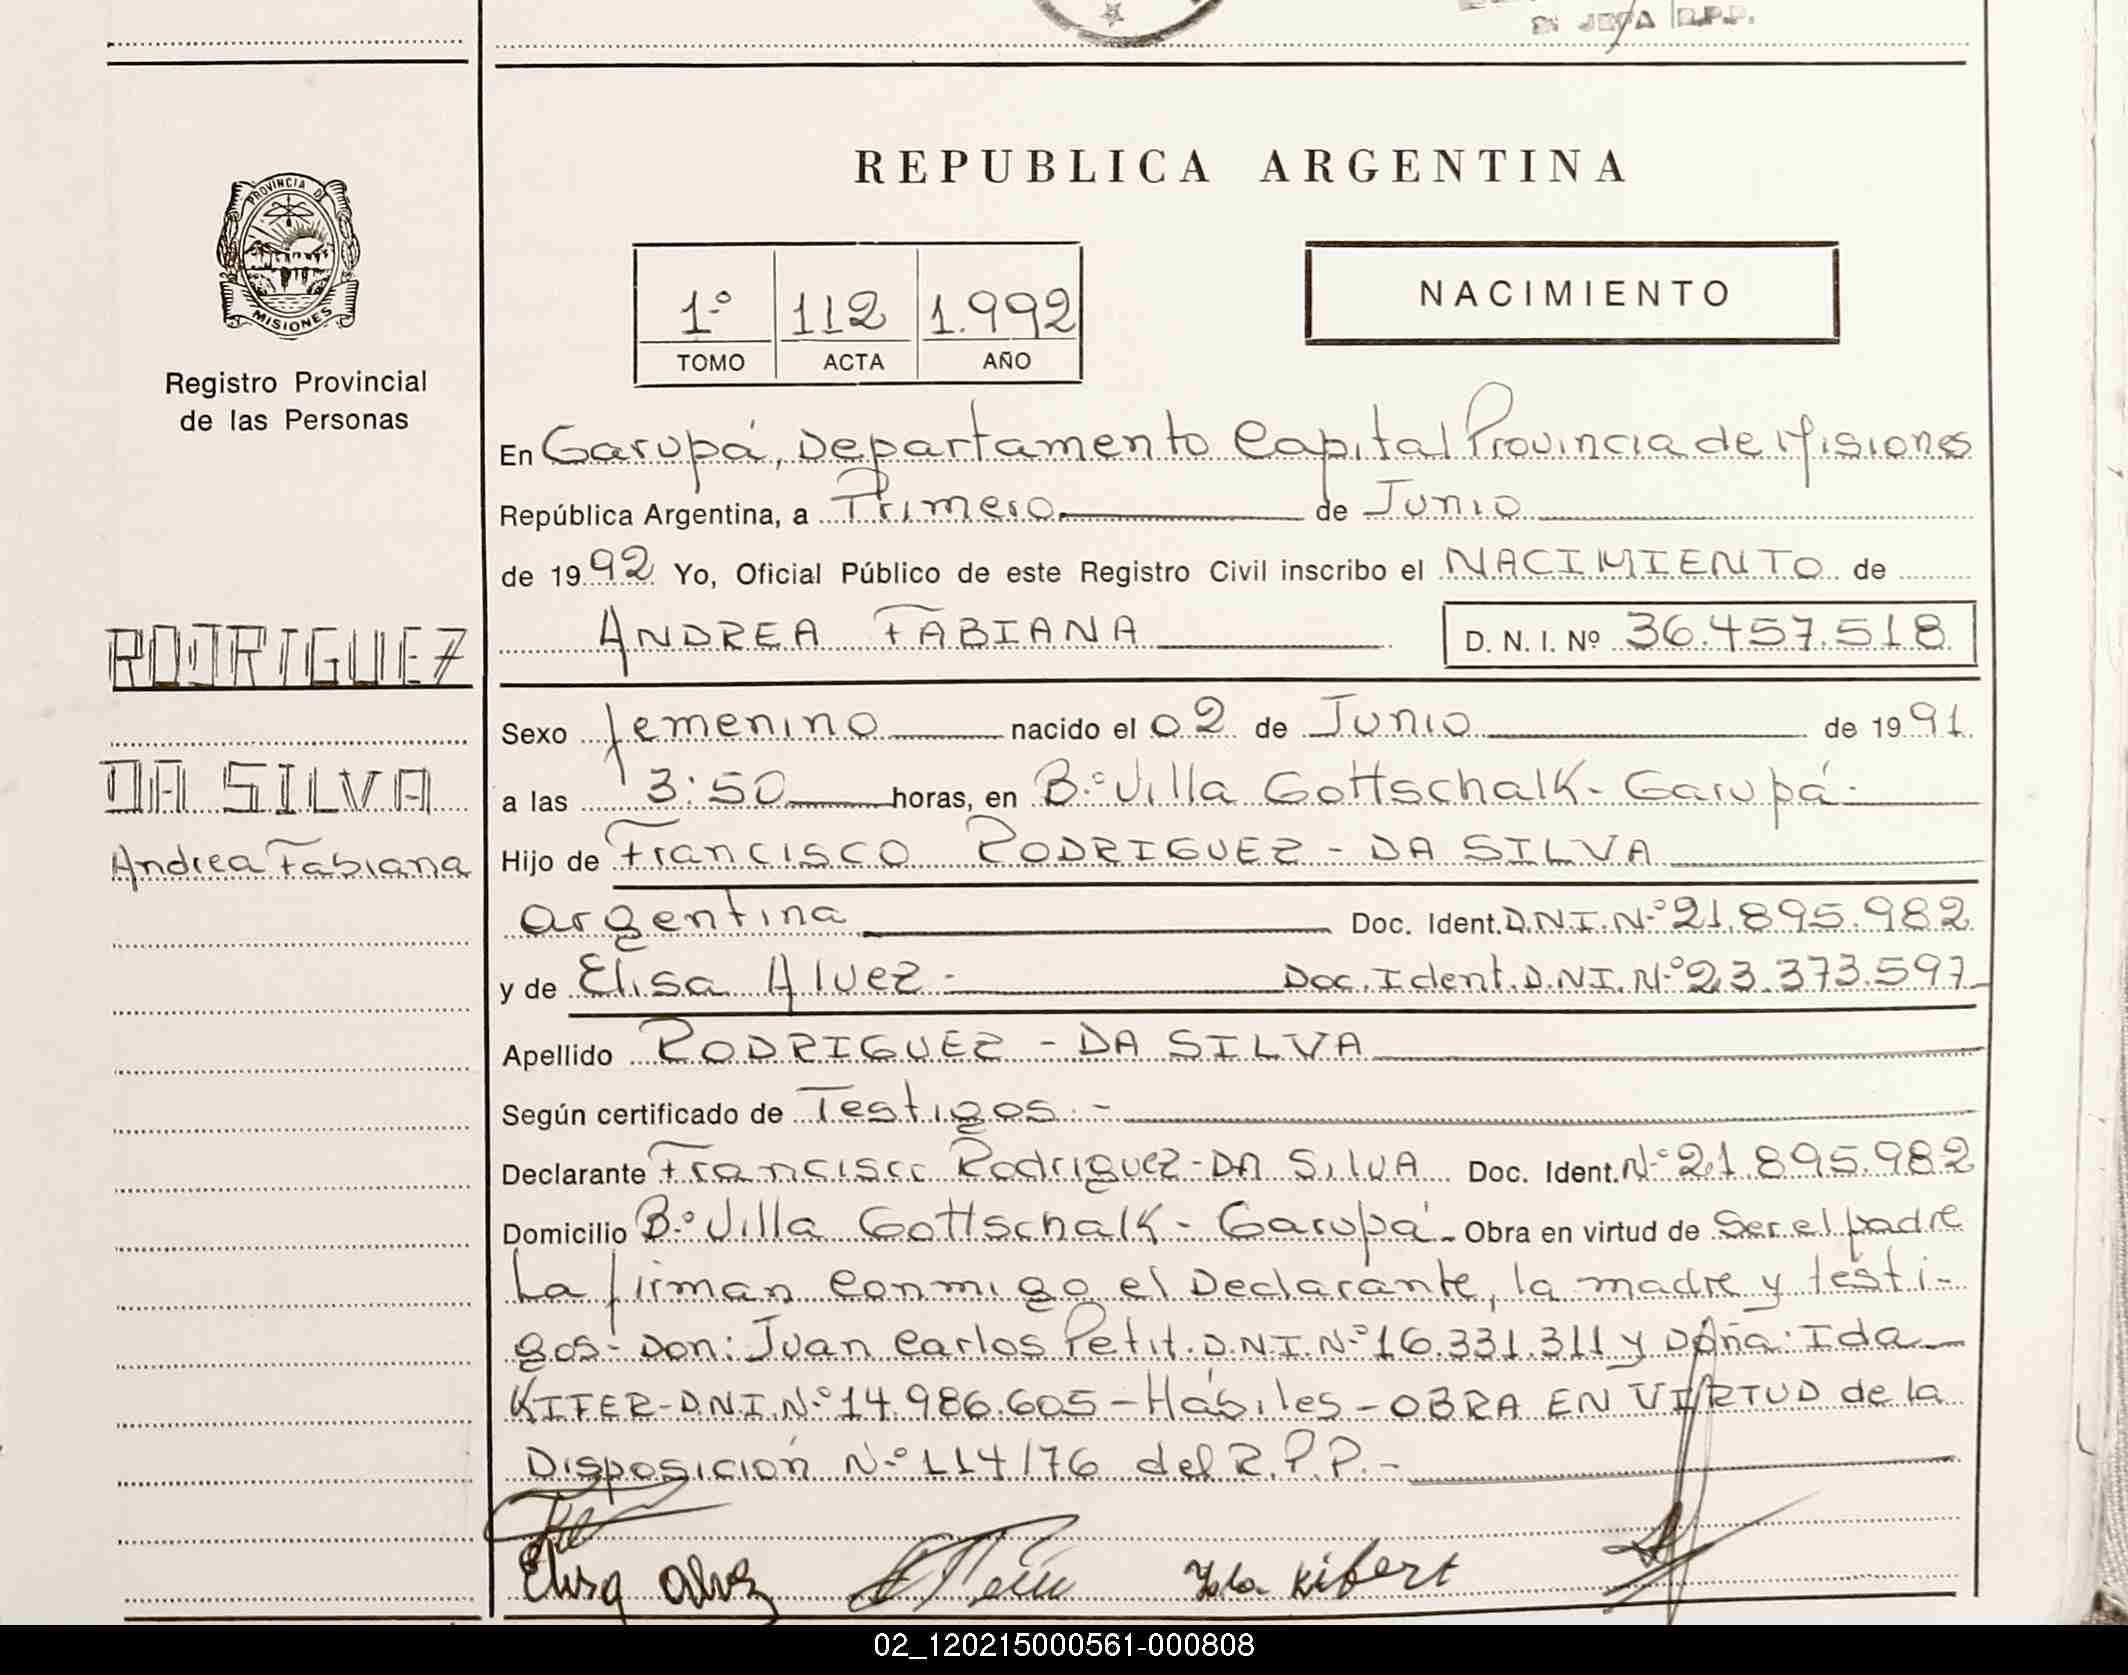 EN JEFA R.P.P.
REPUBLICA ARGENTINA
PROVINCIA DE
MISIONES
Registro Provincial
de las Personas
1º 112 1.992
TOMO ACTA AÑO
NACIMIENTO
En Garupá, Departamento Capital Provincia de Misiones
República Argentina, a Primero de Junio
de 1992 Yo, Oficial Público de este Registro Civil inscribo el NACIMIENTO de
RODRIGUEZ
ANDREA FABIANA D. N. I. Nº 36.457.518
Sexo femenino nacido el 02 de Junio de 1991.
DA SILVA
a las 3:50 horas, en B.º Villa Gottschalk - Garupá.-
Andrea Fabiana
Hijo de Francisco RODRIGUEZ - DA SILVA
argentina Doc. Ident. D.N.I.N.º 21.895.982
y de Elisa Alvez.- Doc. Ident. D.N.I. N.º 23.373.597
Apellido RODRIGUEZ - DA SILVA
Según certificado de Testigos.-
Declarante Francisco Rodriguez - DA SILVA Doc. Ident. N.º 21.895.982
Domicilio B.º Villa Gottschalk - Garupá - Obra en virtud de Ser el padre
La firman conmigo el Declarante, la madre y testi-
gos - Don: Juan Carlos Petit. D.N.I.N.º 16.331.311 y Doña: Ida
KIFER - D.N.I. N.º 14.986.605 - Hábiles - OBRA EN VIRTUD de la
Disposición N.º 114/76 del R.P.P.-
Elisa Alvez Ida Kifert
02_120215000561-000808